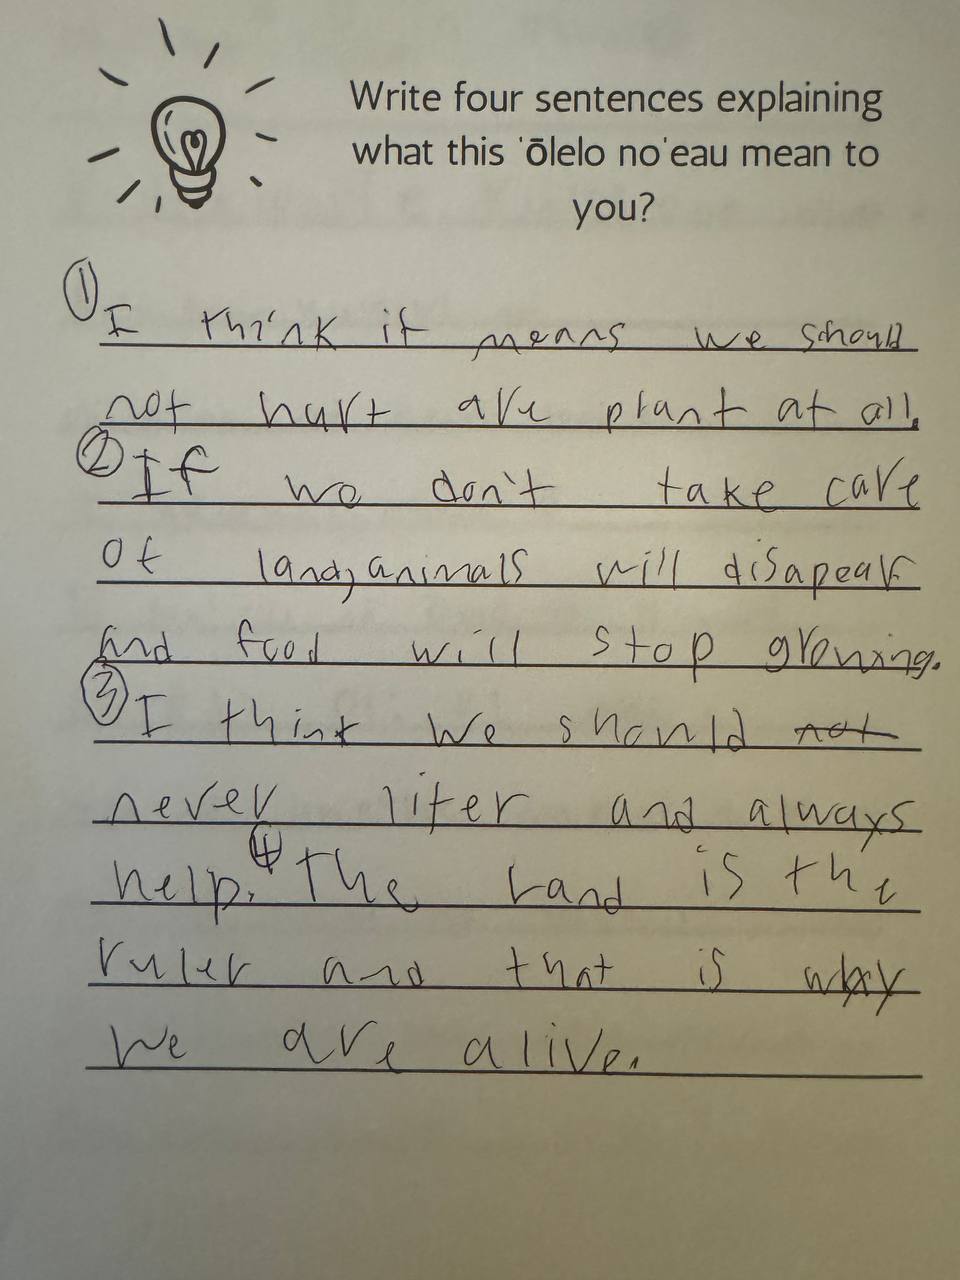 Write four sentences explaining
what this ʻōlelo noʻeau mean to
you?
① I think it means we should
not hurt are plant at all.
② If we don't take care
of land, animals will disapear
And food will stop growing.
③ I think we should not
never liter and always
help. ④ The land is the
ruler and that is why
we are alive.